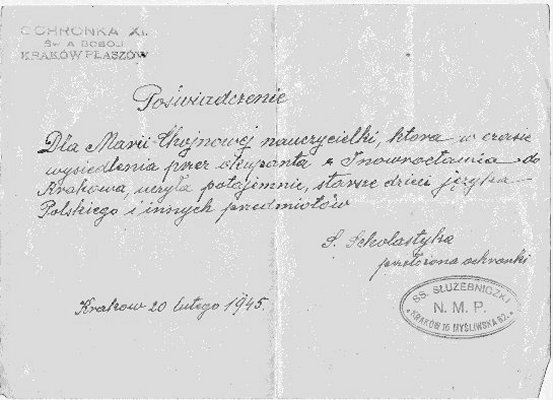 OCHRONKA XI.
ŚW. A. BOBOLI
KRAKÓW PŁASZÓW
Poświadczenie
Dla Marii Chojnowej nauczycielki, która w czasie
wysiedlenia przez okupanta z Inowrocławia do
Krakowa, uczyła potajemnie, starsze dzieci języka
Polskiego i innych przedmiotów
S. Scholastyka
przełożona ochronki
Kraków 20 lutego 1945.
SS. SŁUŻEBNICZKI
N. M. P.
KRAKÓW 16 MYŚLIWSKA 62.